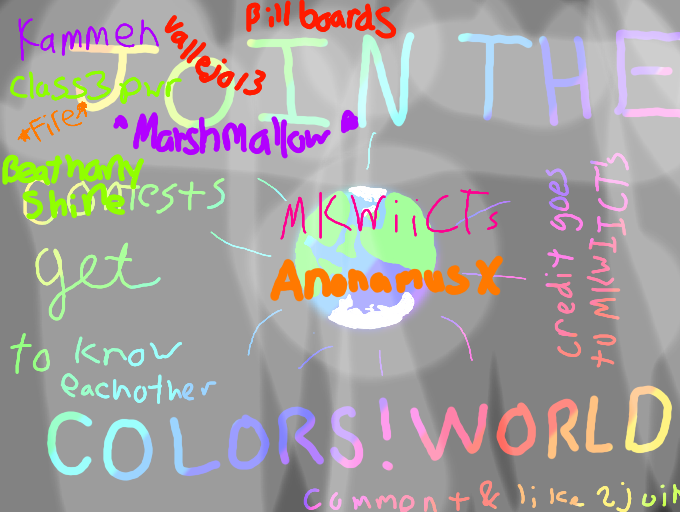 Bill boards
Kammeh
Vallejo13
JOIN THE
Class3pwr
*Fire*
Marshmallow
Beathany
Shine
Contests
get
to know
eachother
MKWiiCTs
AnonamusX
credit goes
to MKWIICTs
COLORS! WORLD
common+ & like 2 join